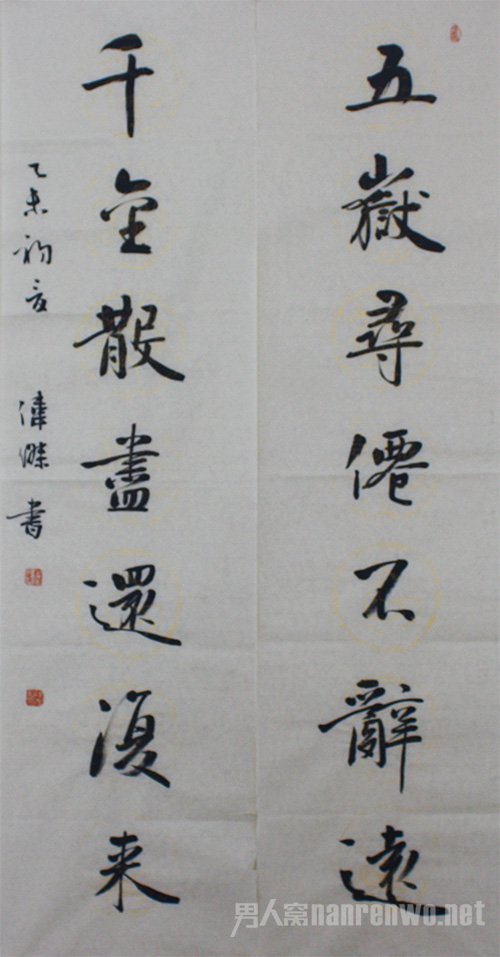 五嶽尋僊不辭遠
千金散盡還復来
乙未初夏 偉傑書
男人窝nanrenwo.net